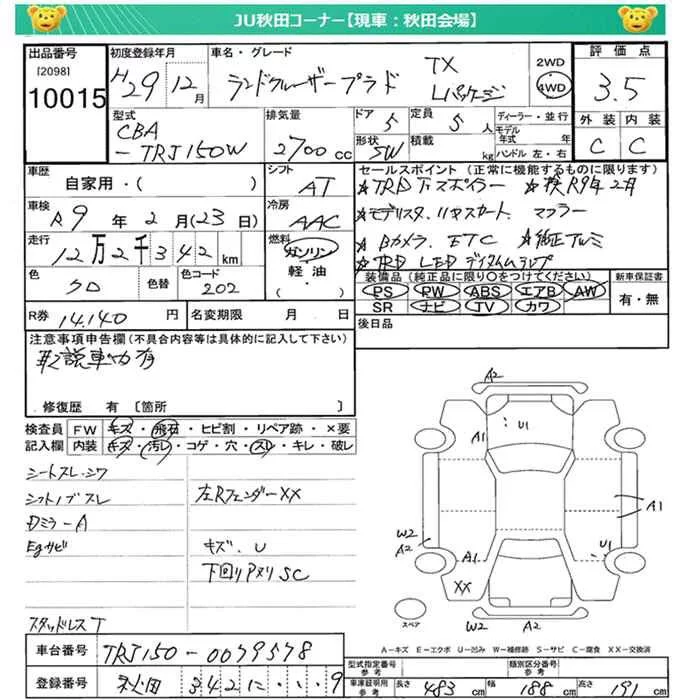 JU秋田コーナー【現車：秋田会場】
出品番号
[2098]
10015
初度登録年月
H29 12月
車名・グレード
ランドクルーザープラド
TX
Lパッケージ
2WD
4WD
評価点
3.5
外装 内装
C C
型式
CBA
-TRJ150W
排気量
2700cc
ドア
5
定員
5人
形状
SW
積載
kg
ディーラー・並行
モデル年式 年
ハンドル 左・右
車歴
自家用・( )
シフト
AT
車検
R9年2月(23日)
冷房
AAC
走行
12万2千342km
燃料
ガソリン
軽・油
( )
色
色替
色コード
202
R券
14,140円
名変期限 月 日
セールスポイント (正常に機能するものに限ります)
☆TRD 下スポイラー ☆検R9年2月
☆モデリスタ、リヤスカート、マフラー
☆Bカメラ、ETC ☆純正アルミ
☆TRD LEDデイタイムランプ
装備品（純正品に限り〇をつけてください）
PS PW ABS エアB AW
SR ナビ TV カワ
新車保証書
有・無
後日品
注意事項申告欄(不具合内容等は具体的に記入して下さい)
取説車内有
修復歴 有 〔箇所 〕
検査員記入欄
FW キズ・飛石・ヒビ割・リペア跡・×要
内装 キズ・汚レ・コゲ・穴・スレ・キレ・破レ
シートスレ・シワ
シフトノブスレ
左Rフェンダー XX
Dミラー A
Egサビ
キズ、U
下回りアヌリSC
スタッドレスT
A2
A1
U1
A1
W2
A2
A1
U1
XX
スペア
W2
A2
A－キズ E－エクボ U－凹み W－補修跡 S－サビ C－腐食 XX－交換済
車台番号
TRJ150-0079578
登録番号
秋田 342 に ・・・9
型式指定番号
類別区分番号
車庫証明用参考
長さ 483cm
幅 188cm
高さ 191cm